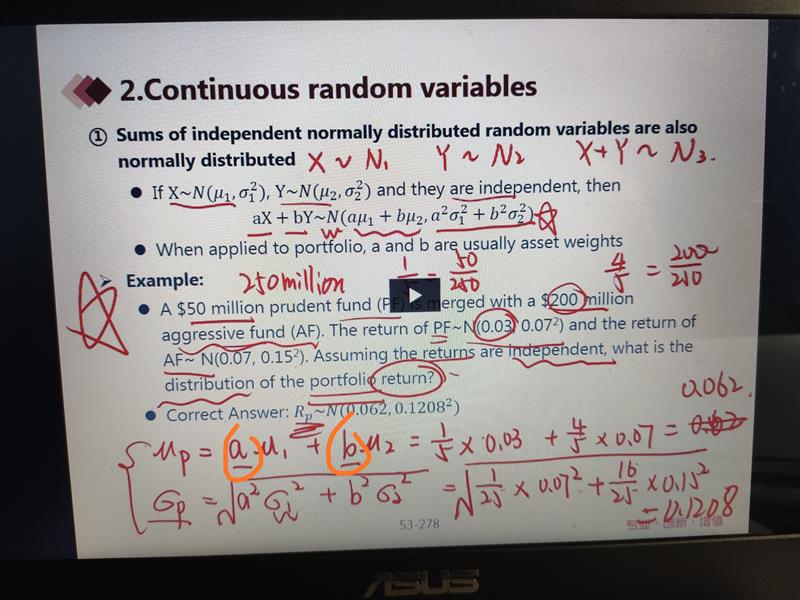 2.Continuous random variables
① Sums of independent normally distributed random variables are also
normally distributed X ~ N₁ Y ~ N₂ X+Y ~ N₃.
● If X~N(μ₁,σ₁²), Y~N(μ₂,σ₂²) and they are independent, then
aX + bY~N(aμ₁ + bμ₂, a²σ₁² + b²σ₂²)
w
● When applied to portfolio, a and b are usually asset weights
➢ Example: 250million 1/5 = 50/250 4/5 = 200/250
● A $50 million prudent fund (PF) is merged with a $200 million
aggressive fund (AF). The return of PF~N(0.03, 0.07²) and the return of
AF~ N(0.07, 0.15²). Assuming the returns are independent, what is the
distribution of the portfolio return?
0.062.
● Correct Answer: Rₚ~N(0.062, 0.1208²)
μp = a μ₁ + b μ₂ = 1/5 × 0.03 + 4/5 × 0.07 =
σp = √a²σ₁² + b²σ₂² = √1/25 × 0.07² + 16/25 × 0.15²
= 0.1208
53-278
专业·创新·增值
ASUS